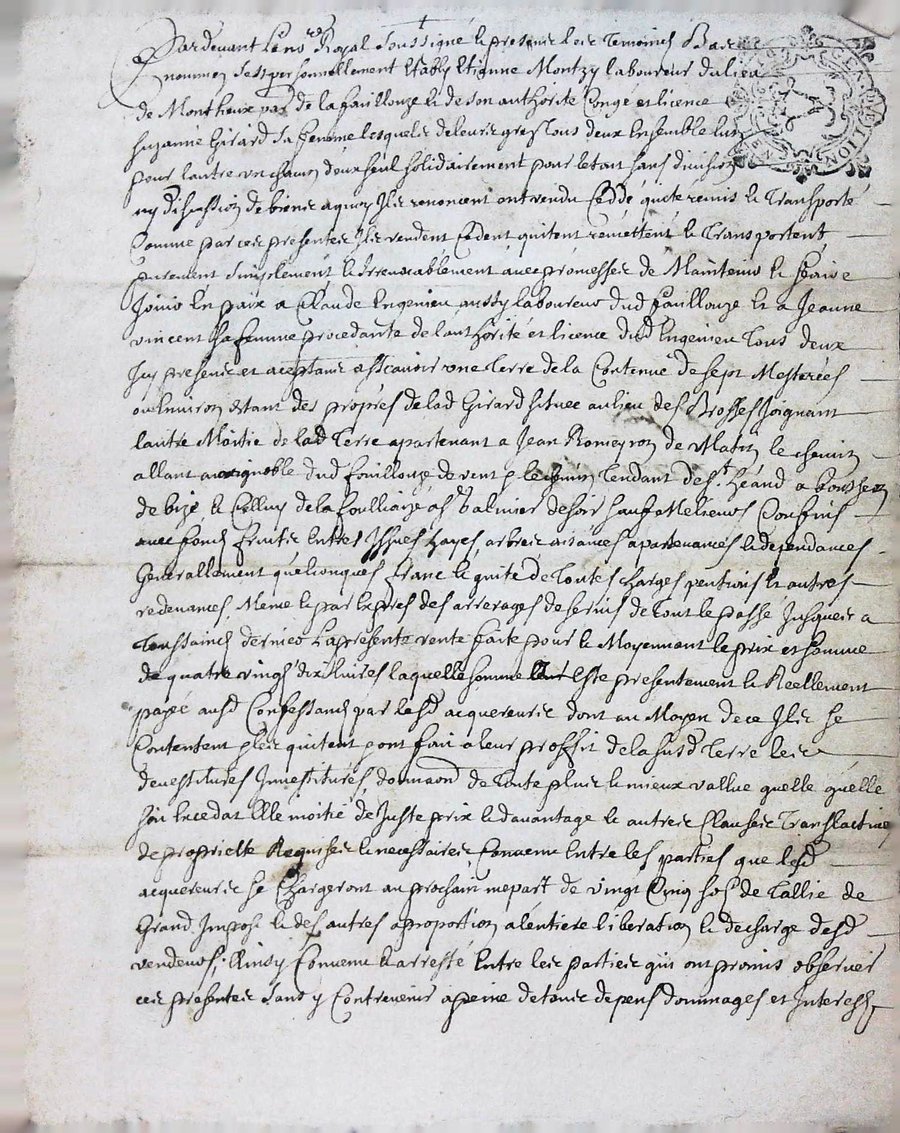 Pardevant le no.re Royal soussigné & presens les Temoings Bas
nommes sest personnellement estably Etienne Montzy laboureur du lieu
de Montheux par de la faillouze & de son authorite Congé et licence
suzanne Girard sa femme lesquels de leurs grés tous deux ensemble lun
pour lautre un chacun deux seul solidairement pour le tout sans division
ny discution de biens a quoy Ils renoncent ont vendu Ceddé quité remis & Transporté
Comme par ces presentes Ils vendent Cedent quitent remettent & Transportent
purement simplement & Irrevocablement avec promesses de Maintenir & faire
Jouir en paix a Claude Engenieu aussy laboureur dud faillouze et a Jeanne
vincent sa femme procedante de lauthorité et licence dud Engenieu Tous deux
Icy presens et aceptans assçavoir une Terre de la Contenue de sept Mesterées
ou Environ estant des propres de lad Girard situee au lieu des Brosses Joignant
lautre Moitie de lad Terre apartenant a Jean Romeyron de matin le chemin
allant au vignoble dud fouillouze de vent & le chemin Tendant de st. héand a
de bize & Celluy de la de soir sauf Melieurs Confins
avec fonds fruits Entrées Issues hayes arbres aisances apartenances & dependances
Generallement quelconques franc & quite de Toutes charges pentions et autres
redevances Meme & par Expres des arrerages de servis de tout le passé Jusques a
Toussaincts dernier La presente vente faite pour & Moyennant le prix et somme
de quatre vingt dix livres laquelle somme este presentement & Reellement
payée ausd Confessants par lesd acquereurs dont au Moyen de ce Ils se
Contentent & les quitent font a leur proffit de la susd Terre les
devestitures Investitures donnaon de Toute plus & mieux vallue quelle quelle
soit Exceda Elle moitié de Juste prix & davantage & autres Clauses Translactive
de proprietté Requises & necessaires, Convenu Entre les parties que lesd
acquereurs se Chargeront au prochain mepart de vingt Cinq sols de Tallie de
Grand Impost & des autres a proportion a lentiere liberation & decharge desd
vendeurs, Ainsy Convenu & arresté Entre les parties qui ont promis observer
ces presentes sans y Contrevenir a peine de tous depens dommages et Interests